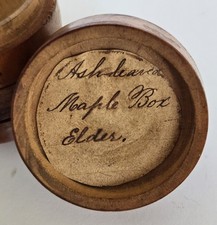 Ash leaved
Maple Box
Elder.